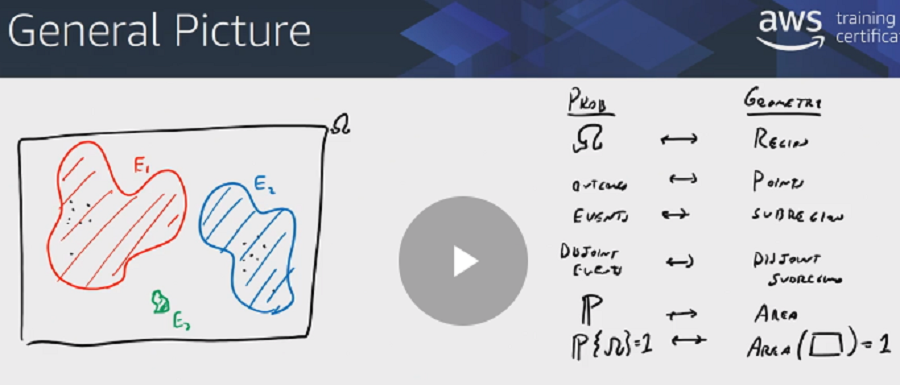 General Picture
aws training
certifica
Ω
E₁
E₂
E₃
PROB GEOMETRY
Ω ↔ REGION
OUTCOMES ↔ POINTS
EVENTS ↔ SUBREGION
DISJOINT EVENTS ↔ DISJOINT SUBREGIONS
ℙ ↔ AREA
ℙ{Ω}=1 ↔ AREA(□)=1